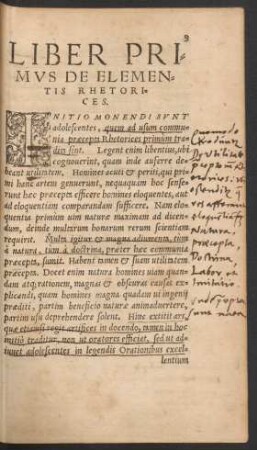 9
LIBER PRI-
MVS DE ELEMEN-
TIS RHETORI-
CES.
INITIO MONENDI SVNT
adolescentes, quem ad usum commu-
nia præcepta Rhetorices primùm tra-
dita sint. Legent enim libentius, ubi
cognouerint, quam inde auferre de-
beant utilitatem. Homines acuti & periti, qui pri-
mi hanc artem genuerunt, nequaquam hoc sense-
runt hæc præcepta efficere homines eloquentes, aut
ad eloquentiam comparandam sufficere. Nam elo-
quentia primùm uim naturæ maximam ad dicen-
dum, deinde multarum bonarum rerum scientiam
requirit. Multa igitur & magna adiumenta, tum
à natura, tum à doctrina, præter hæc communia
præcepta, sumit. Habent tamen & suam utilitatem
præcepta. Docet enim natura homines uiam quan-
dam atq; rationem, magnas & obscuras causas ex-
plicandi, quam homines magna quadam ui ingenij
præditi, partim beneficio naturæ animaduertere,
partim usu deprehendere solent. Hinc extitit ars,
quæ etsi
regit artifices in docendo, tamen in hoc
initio traditur, non ut oratores efficiat, sed ut ad-
iuuet adolescentes in legendis Orationibus excel-
lentium
Natura,
præcepta
Doctrina
Labor et
imitatio